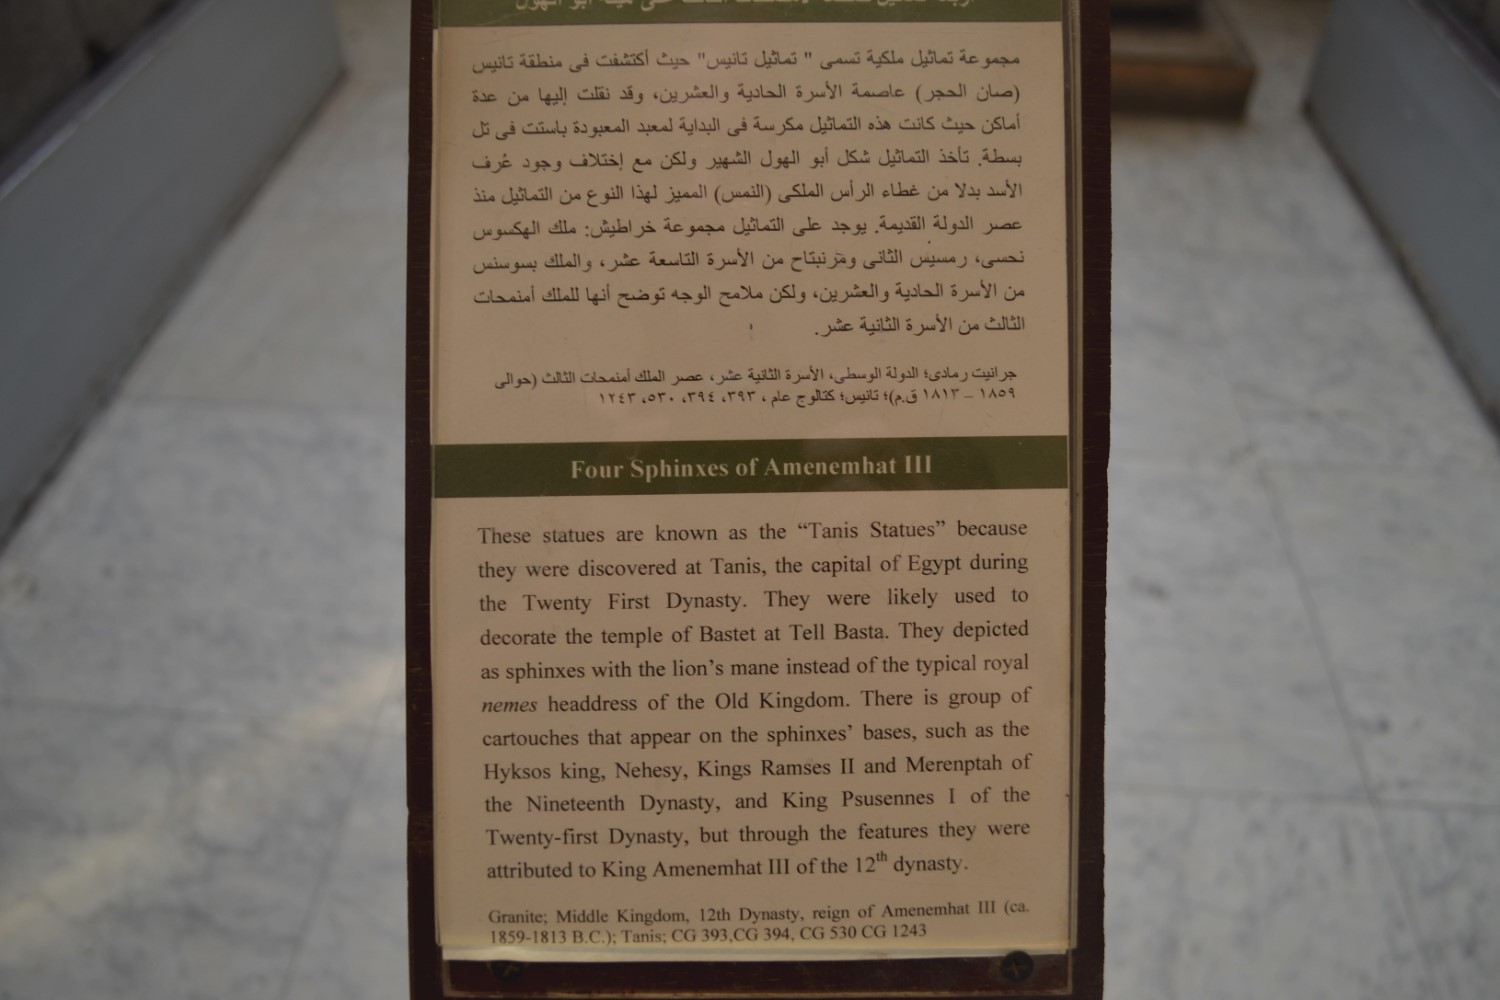 مجموعة تماثيل ملكية تسمى " تماثيل تانيس" حيث أكتشفت فى منطقة تانيس
(صان الحجر) عاصمة الأسرة الحادية والعشرين، وقد نقلت إليها من عدة
أماكن حيث كانت هذه التماثيل مكرسة فى البداية لمعبد المعبودة باستت فى تل
بسطة. تأخذ التماثيل شكل أبو الهول الشهير ولكن مع إختلاف وجود عُرف
الأسد بدلا من غطاء الرأس الملكى (النمس) المميز لهذا النوع من التماثيل منذ
عصر الدولة القديمة. يوجد على التماثيل مجموعة خراطيش: ملك الهكسوس
نحسى، رمسيس الثانى ومرنبتاح من الأسرة التاسعة عشر، والملك بسوسنس
من الأسرة الحادية والعشرين، ولكن ملامح الوجه توضح أنها للملك أمنمحات
الثالث من الأسرة الثانية عشر.
جرانيت رمادى؛ الدولة الوسطى، الأسرة الثانية عشر، عصر الملك أمنمحات الثالث (حوالى
١٨٥٩ – ١٨١٣ ق.م)؛ تانيس؛ كتالوج عام ، ٣٩٣، ٣٩٤، ٥٣٠، ١٢٤٣
Four Sphinxes of Amenemhat III
These statues are known as the “Tanis Statues” because
they were discovered at Tanis, the capital of Egypt during
the Twenty First Dynasty. They were likely used to
decorate the temple of Bastet at Tell Basta. They depicted
as sphinxes with the lion’s mane instead of the typical royal
nemes headdress of the Old Kingdom. There is group of
cartouches that appear on the sphinxes’ bases, such as the
Hyksos king, Nehesy, Kings Ramses II and Merenptah of
the Nineteenth Dynasty, and King Psusennes I of the
Twenty-first Dynasty, but through the features they were
attributed to King Amenemhat III of the 12th dynasty.
Granite; Middle Kingdom, 12th Dynasty, reign of Amenemhat III (ca.
1859-1813 B.C.); Tanis; CG 393,CG 394, CG 530 CG 1243